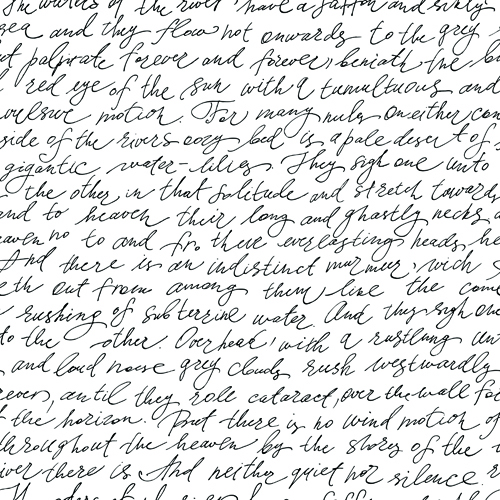 The waters of the river have a saffron and sickly
sea and they flow not onwards to the grey
palpitate forever and forever, beneath the
red eye of the sun with a tumultuous and
motion. For many miles on either
side of the rivers oozy bed is a pale desert of
gigantic water-lilies. They sigh one unto
the other in that solitude and stretch towards
and to heaven their long and ghastly necks
no to and fro there everlasting heads,
And there is an indistinct murmur, wich
eth out from among them like the
rushing of subterrine water. And they sigh one
to the other. Overhead, with a rustlung
and loud noise grey clouds rush westwardly
until they role cataract, over the wall
the horizon. But there is no wind motion of
throughout the heaven by the shores of the
there is And neither quiet nor silence